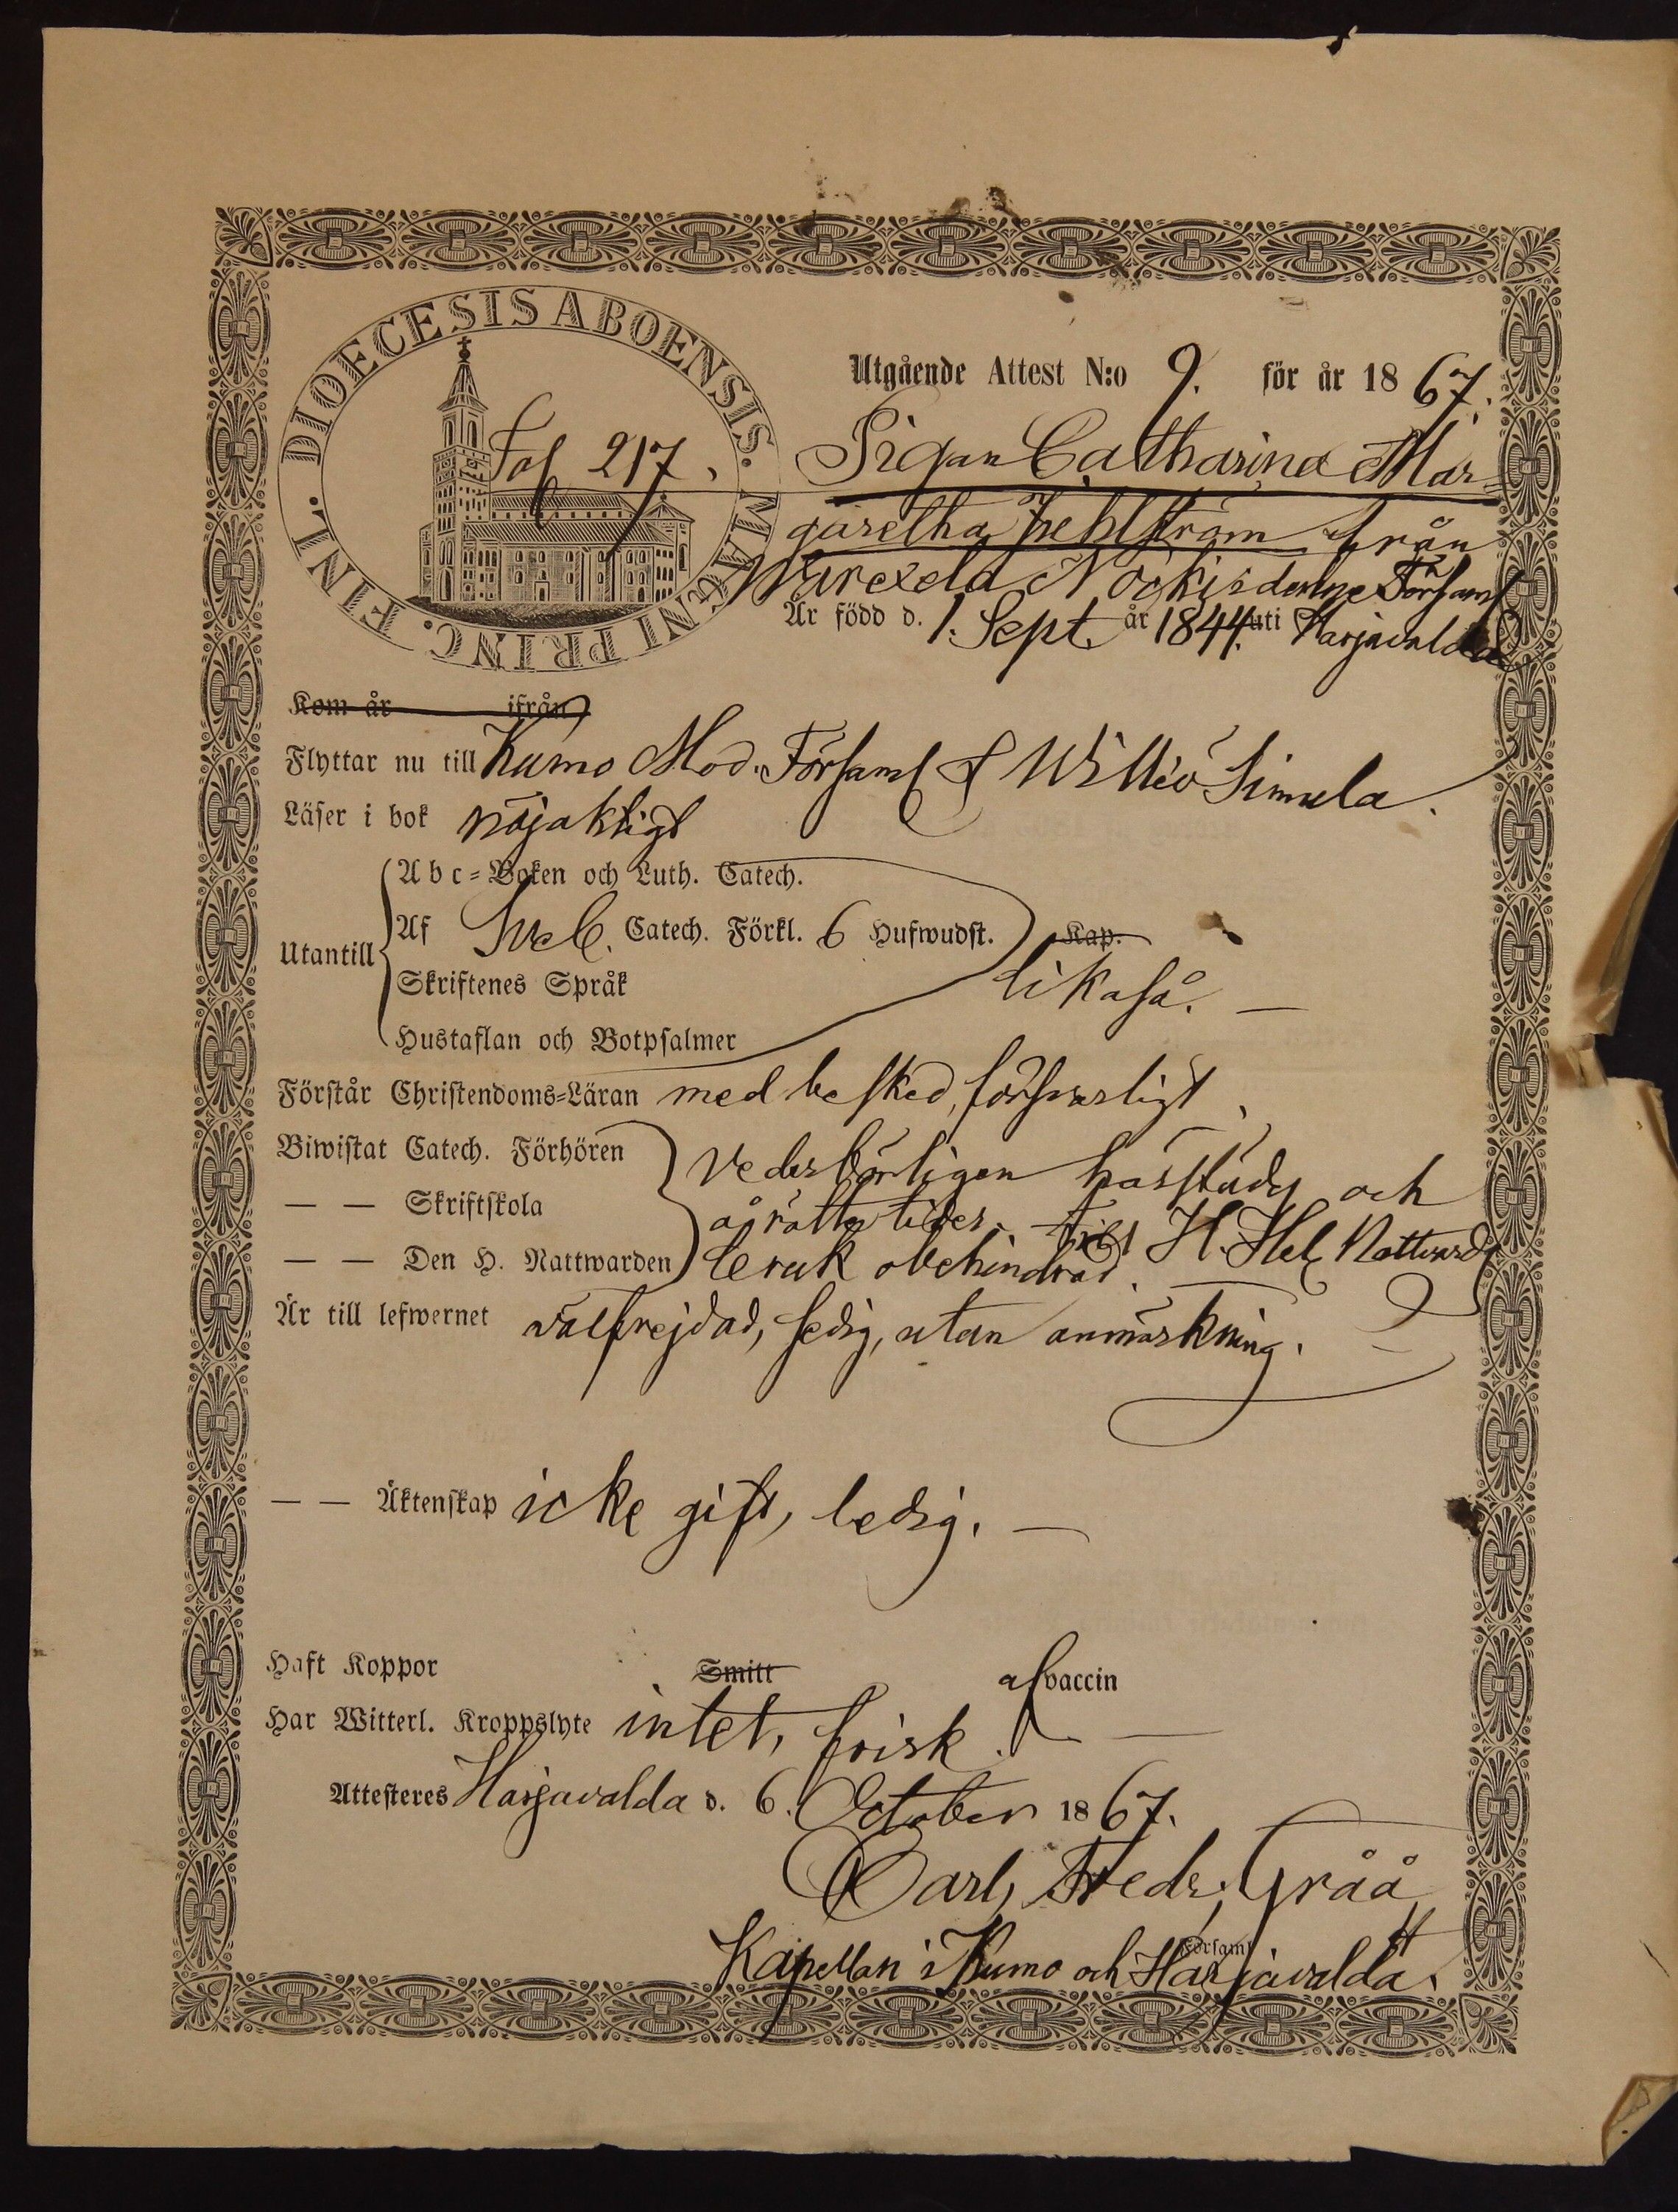 DIOECESIS ABOENSIS. MAGNI PRINC. FINL.
Fol 217.
Utgående Attest N:o 9. för år 1867.
Pigan Catharina Mar-
garetha Fehlström från
Församl
Är född d. 1. Sept. år 1844. uti Harjavalda
Kom år ifrån
Flyttar nu till Kumo Mod. Församl
Läser i bok nöjaktigt
Abc-Boken och Luth. Catech.
Af Sveb. Catech. Förkl. 6 Hufwudst. Kap.
Utantill
Skriftenes Språk likaså.
Hustaflan och Botpsalmer
Förstår Christendoms-Läran med besked, försvarligt.
Biwistat Catech. Förhören vederbörligen härstädes och
— — Skriftskola å rätta tider. Till H. Hel. Nattvards
— — Den H. Nattwarden bruk obehindrad.
Är till lefwernet välfrejdad, sedig, utan anmärkning.
— — Äktenskap icke gift, ledig. —
Haft Koppor Smitt af vaccin
Har Witterl. Kroppslyte intet, frisk. —
Attesteres Harjavalda d. 6. October 1867.
Carl Fredr. Gråå
Kapellan i Kumo och Harjavalda
Församl